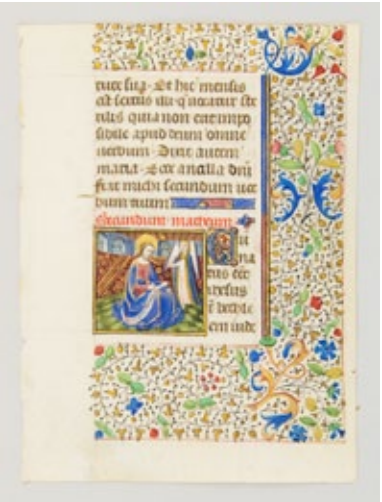 tute sua. Et hic mensis
est sextus illi q̄ vocatur ste
rilis quia non erit impo
sibile apud deum omne
verbum. Dixit autem
maria. Ecce ancilla dn̄i
fiat michi secundum ver
bum tuum
Secundum matheum
Cū
na
tus eēt
ihesus
ī bethle
em iude